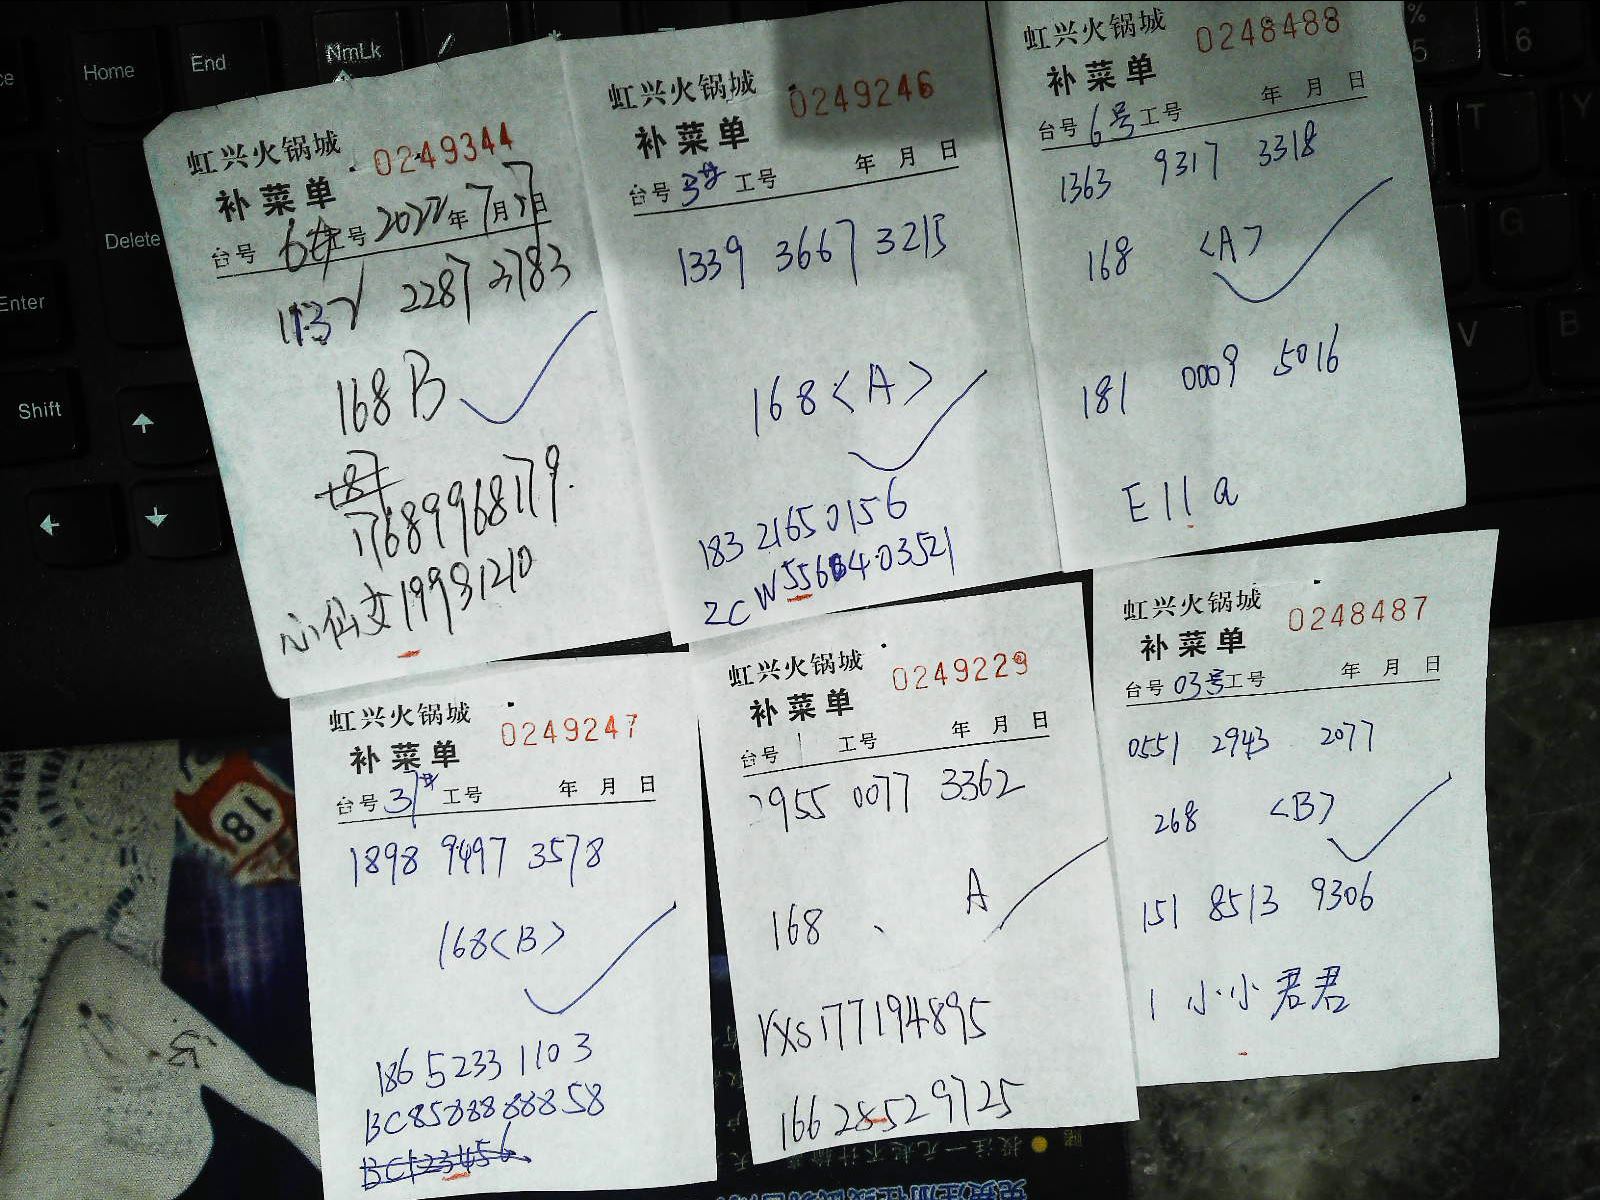 Home
End
NmLk
Delete
Enter
Shift
虹兴火锅城
0249344
补菜单
台号 6# 工号 2022年7月7日
1137 2287 3783
168B
17689968179.
心仙女19981210
虹兴火锅城
0249246
补菜单
台号 3# 工号 年 月 日
1339 3667 3215
168<A>
183 2165 0156
虹兴火锅城
0248488
补菜单
台号 6号 工号 年 月 日
1363 9317 3318
168 <A>
181 0009 5016
Ella
虹兴火锅城
0249247
补菜单
台号 31# 工号 年 月 日
1898 9497 3578
168<B>
186 5233 1103
BC8588888858
BC123456
虹兴火锅城
0249229
补菜单
台号 1 工号 年 月 日
2955 0077 3362
168 、 A
YXS177194895
166 2852 9725
虹兴火锅城
0248487
补菜单
台号 03号 工号 年 月 日
0551 2943 2077
268 <B>
151 8513 9306
1 小小君君
18